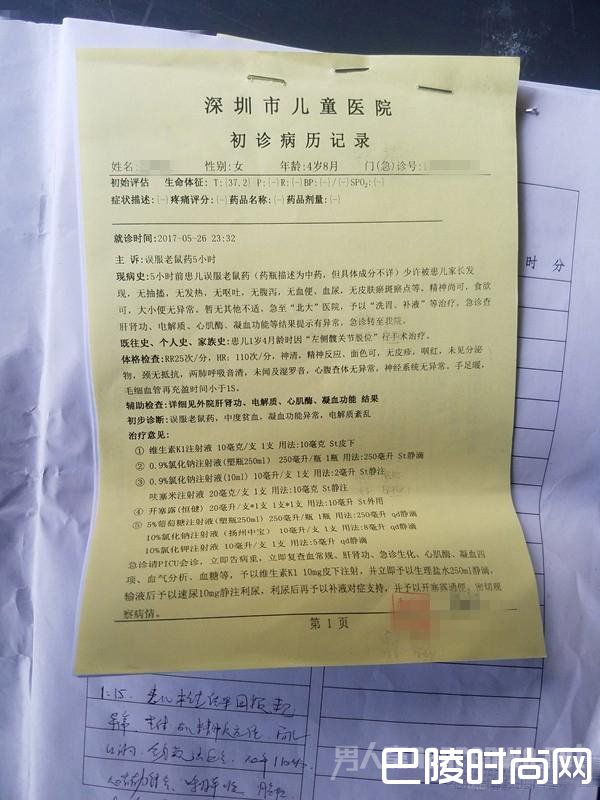 深圳市儿童医院
初诊病历记录
姓名: 性别:女 年龄:4岁8月 门(急)诊号:
初始评估 生命体征: T:(37.2) P:(-)R:(-)BP:(-)/(-)SPO₂:(-)
症状描述:(-)疼痛评分:(-)药品名称:(-)药品剂量:(-)
就诊时间:2017-05-26 23:32
主 诉:误服老鼠药5小时
现病史:5小时前患儿误服老鼠药（药瓶描述为中药，但具体成分不详）少许被患儿家长发
现，无抽搐，无发热，无呕吐，无腹泻，无血便、血尿，无皮肤瘀斑瘀点等，精神尚可，食欲
可，大小便无异常，暂无其他不适，急至“北大”医院，予以“洗胃、补液”等治疗，急诊查
肝肾功、电解质、心肌酶、凝血功能等结果提示有异常，急诊转至我院。
既往史、个人史、家族史:患儿1岁4月龄时因“左侧髋关节脱位”行手术治疗。
体格检查:RR25次/分，HR：110次/分，神清，精神反应、面色可，无皮疹，咽红，未见分泌
物，颈无抵抗，两肺呼吸音清，未闻及湿罗音，心腹查体无异常，神经系统无异常，手足暖，
毛细血管再充盈时间小于1S。
辅助检查:详细见外院肝肾功、电解质、心肌酶、凝血功能 结果
初步诊断:误服老鼠药，中度贫血，凝血功能异常，电解质紊乱
治疗意见:
① 维生素K1注射液 10毫克/支 1支 用法:10毫克 St皮下
② 0.9%氯化钠注射液(塑瓶250ml) 250毫升/瓶 1瓶 用法:250毫升 St静滴
③ 0.9%氯化钠注射液(10ml) 10毫升/支 1支 用法:2毫升 St静注
呋塞米注射液 20毫克/支 1支 用法:10毫克 St静注
④ 开塞露(恒健) 20毫升/支 1支*1支 用法:10毫升 St外用
⑤ 5%葡萄糖注射液(塑瓶250ml) 250毫升/瓶 1瓶 用法:250毫升 qd静滴
10%氯化钠注射液 (扬州中宝) 10毫升/支 1支 用法:8毫升 qd静滴
10%氯化钾注射液 10毫升/支 1支 用法:5毫升 qd静滴
急诊请PICU会诊，立即告病重，立即复查血常规、肝肾功、急诊生化、心肌酶、凝血四
项、血气分析、血糖等，予以维生素K1 10mg皮下注射，并立即予以生理盐水250ml静滴，
输液后予以速尿10mg静注利尿，利尿后再予以补液对症支持，并予以开塞露通便，密切观
察病情。
第 1 页
时 分
1:15.
男人
巴陵时尚网